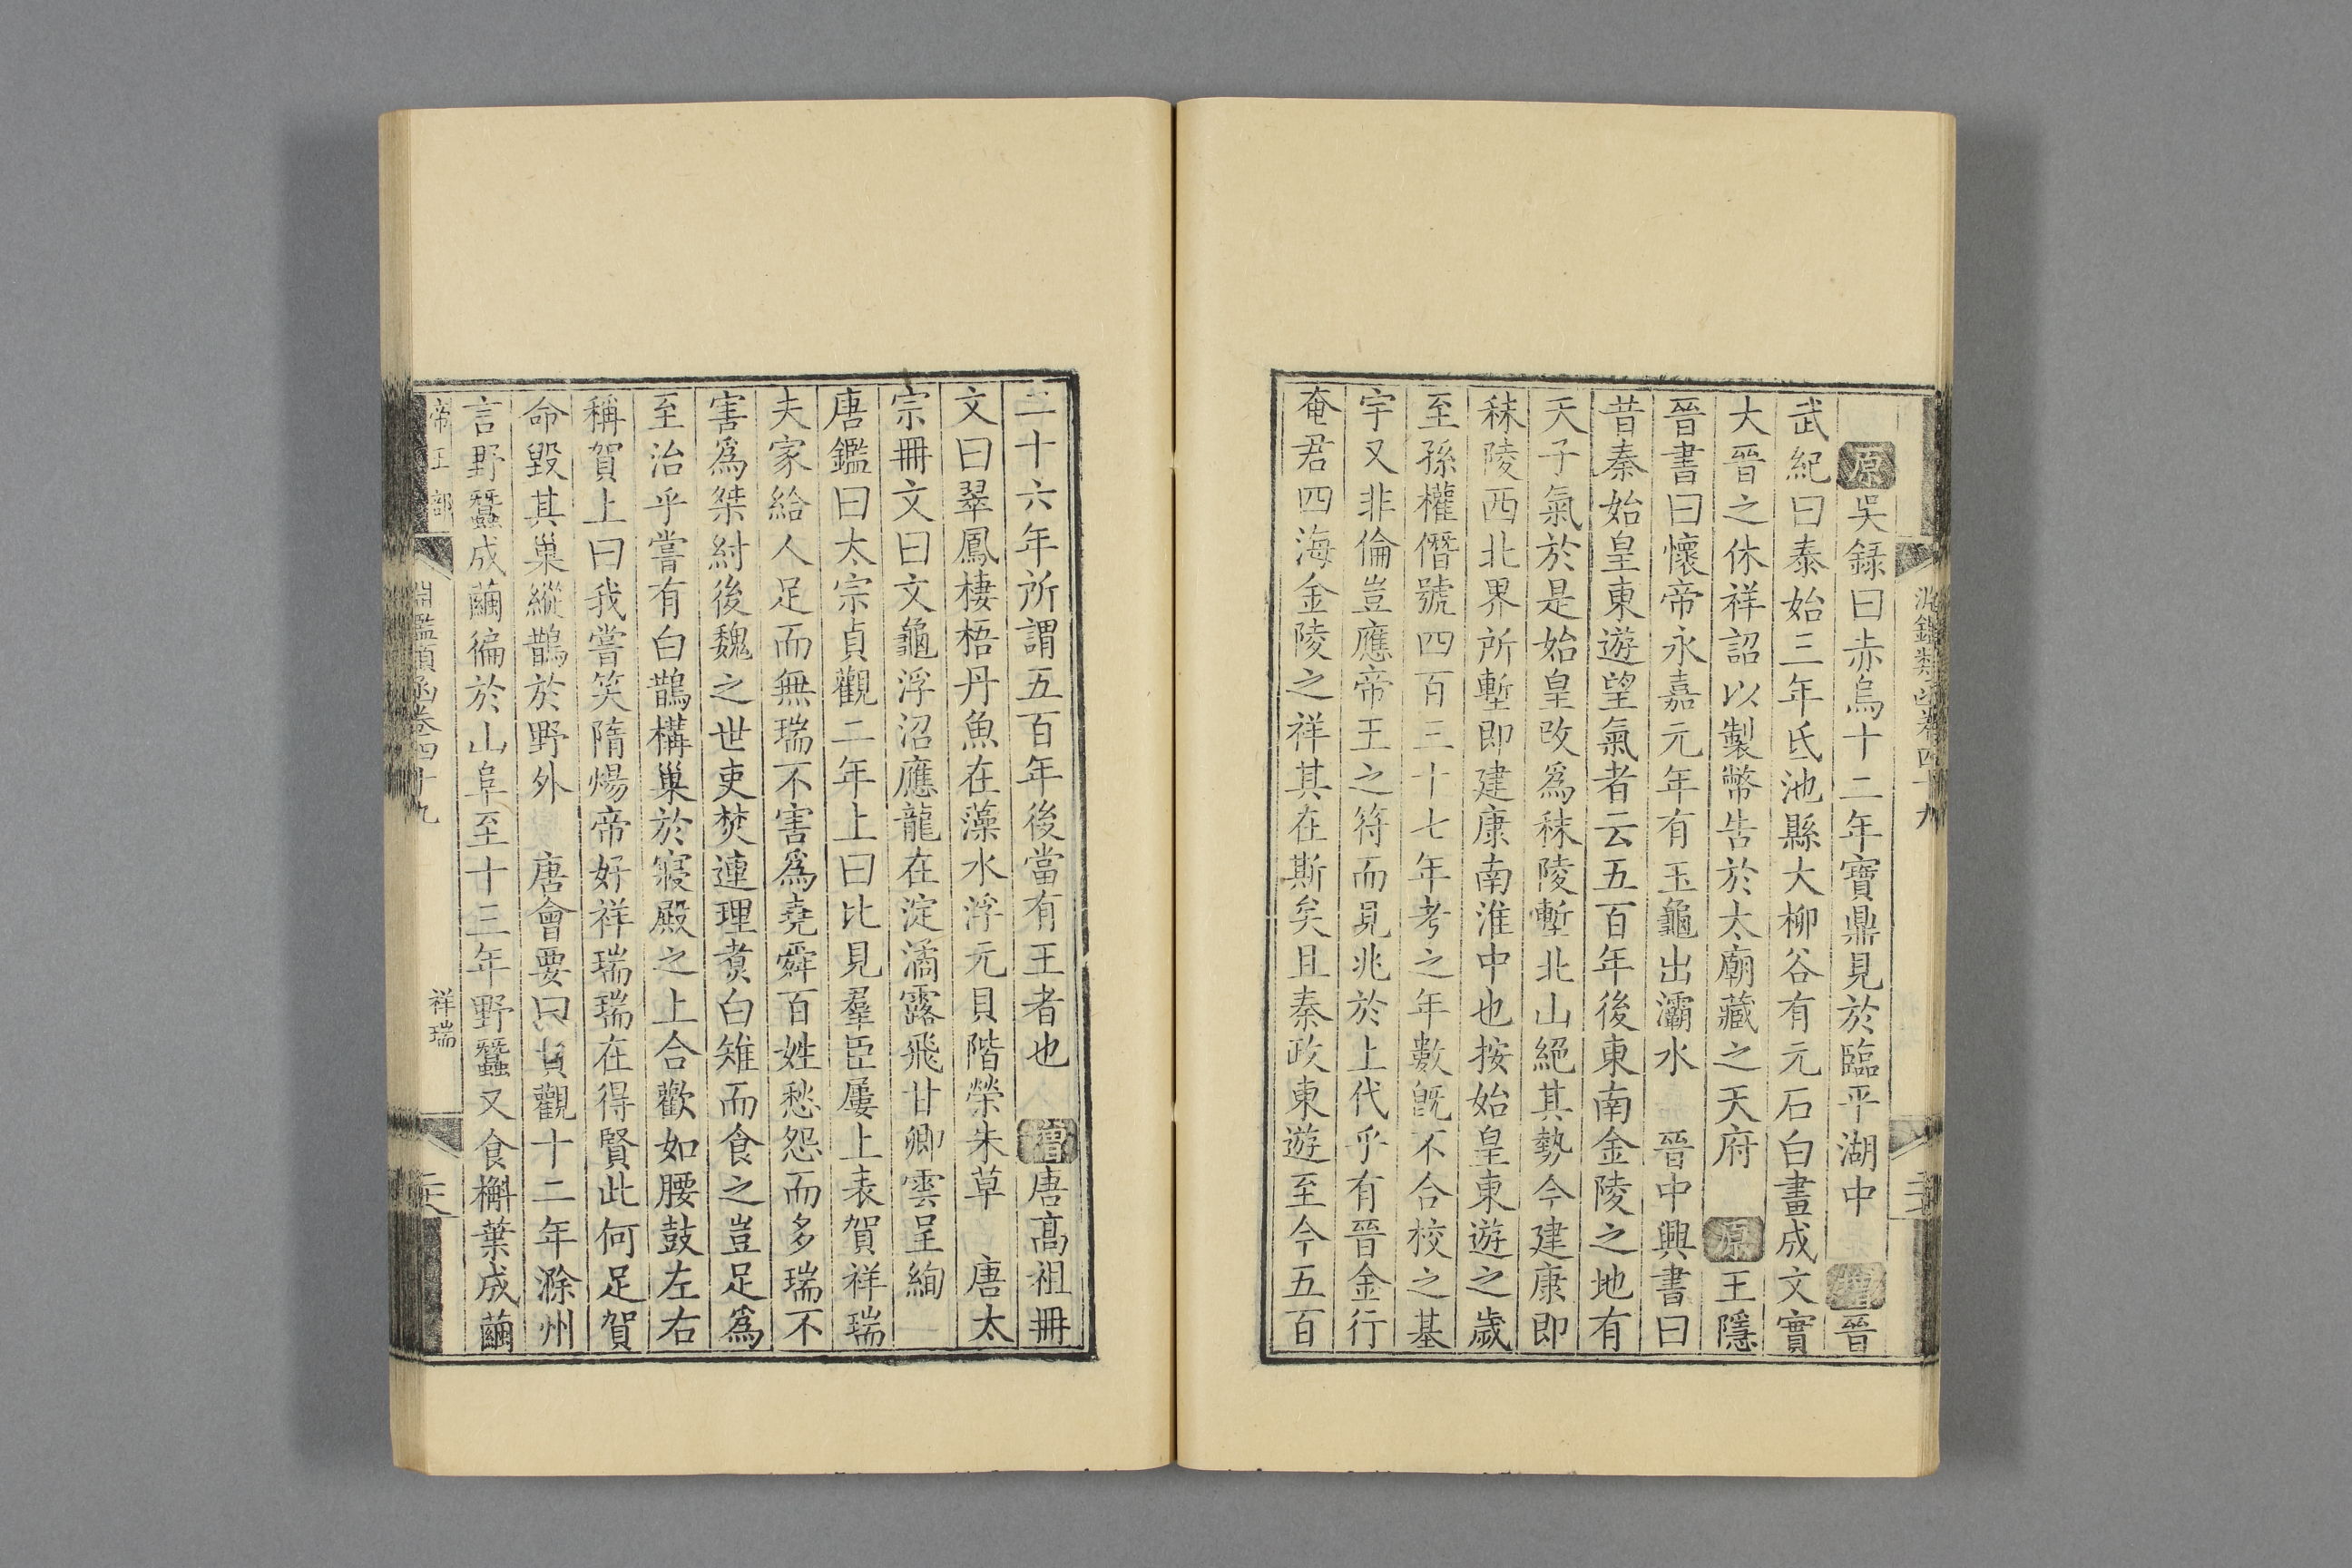 淵鑑類函卷四十九
原吳録曰赤烏十二年寶鼎見於臨平湖中 增晉
武紀曰泰始三年氐池縣大柳谷有元石白畫成文實
大晉之休祥詔以製幣告於太廟藏之天府 原王隱
晉書曰懷帝永嘉元年有玉龜出灞水 晉中興書曰
昔秦始皇東遊望氣者云五百年後東南金陵之地有
天子氣於是始皇改爲秣陵塹北山絕其勢今建康即
秣陵西北界所塹即建康南淮中也按始皇東遊之歲
至孫權僭號四百三十七年考之年數旣不合校之基
宇又非倫豈應帝王之符而見兆於上代乎有晉金行
奄君四海金陵之祥其在斯矣且秦政東遊至今五百
二十六年所謂五百年後當有王者也 增唐高祖冊
文曰翠鳳棲梧丹魚在藻水浮元貝階榮朱草 唐太
宗冊文曰文龜浮沼應龍在淀潏露飛甘卿雲呈絢
唐鑑曰太宗貞觀二年上曰比見羣臣屢上表賀祥瑞
夫家給人足而無瑞不害爲堯舜百姓愁怨而多瑞不
害爲桀紂後魏之世吏焚連理煮白雉而食之豈足爲
至治乎嘗有白鵲構巢於寢殿之上合歡如腰鼓左右
稱賀上曰我嘗笑隋煬帝好祥瑞瑞在得賢此何足賀
命毀其巢縱鵲於野外 唐會要曰貞觀十二年滁州
言野蠶成繭徧於山阜至十三年野蠶又食槲葉成繭
帝王部 淵鑑類函卷四十九 祥瑞